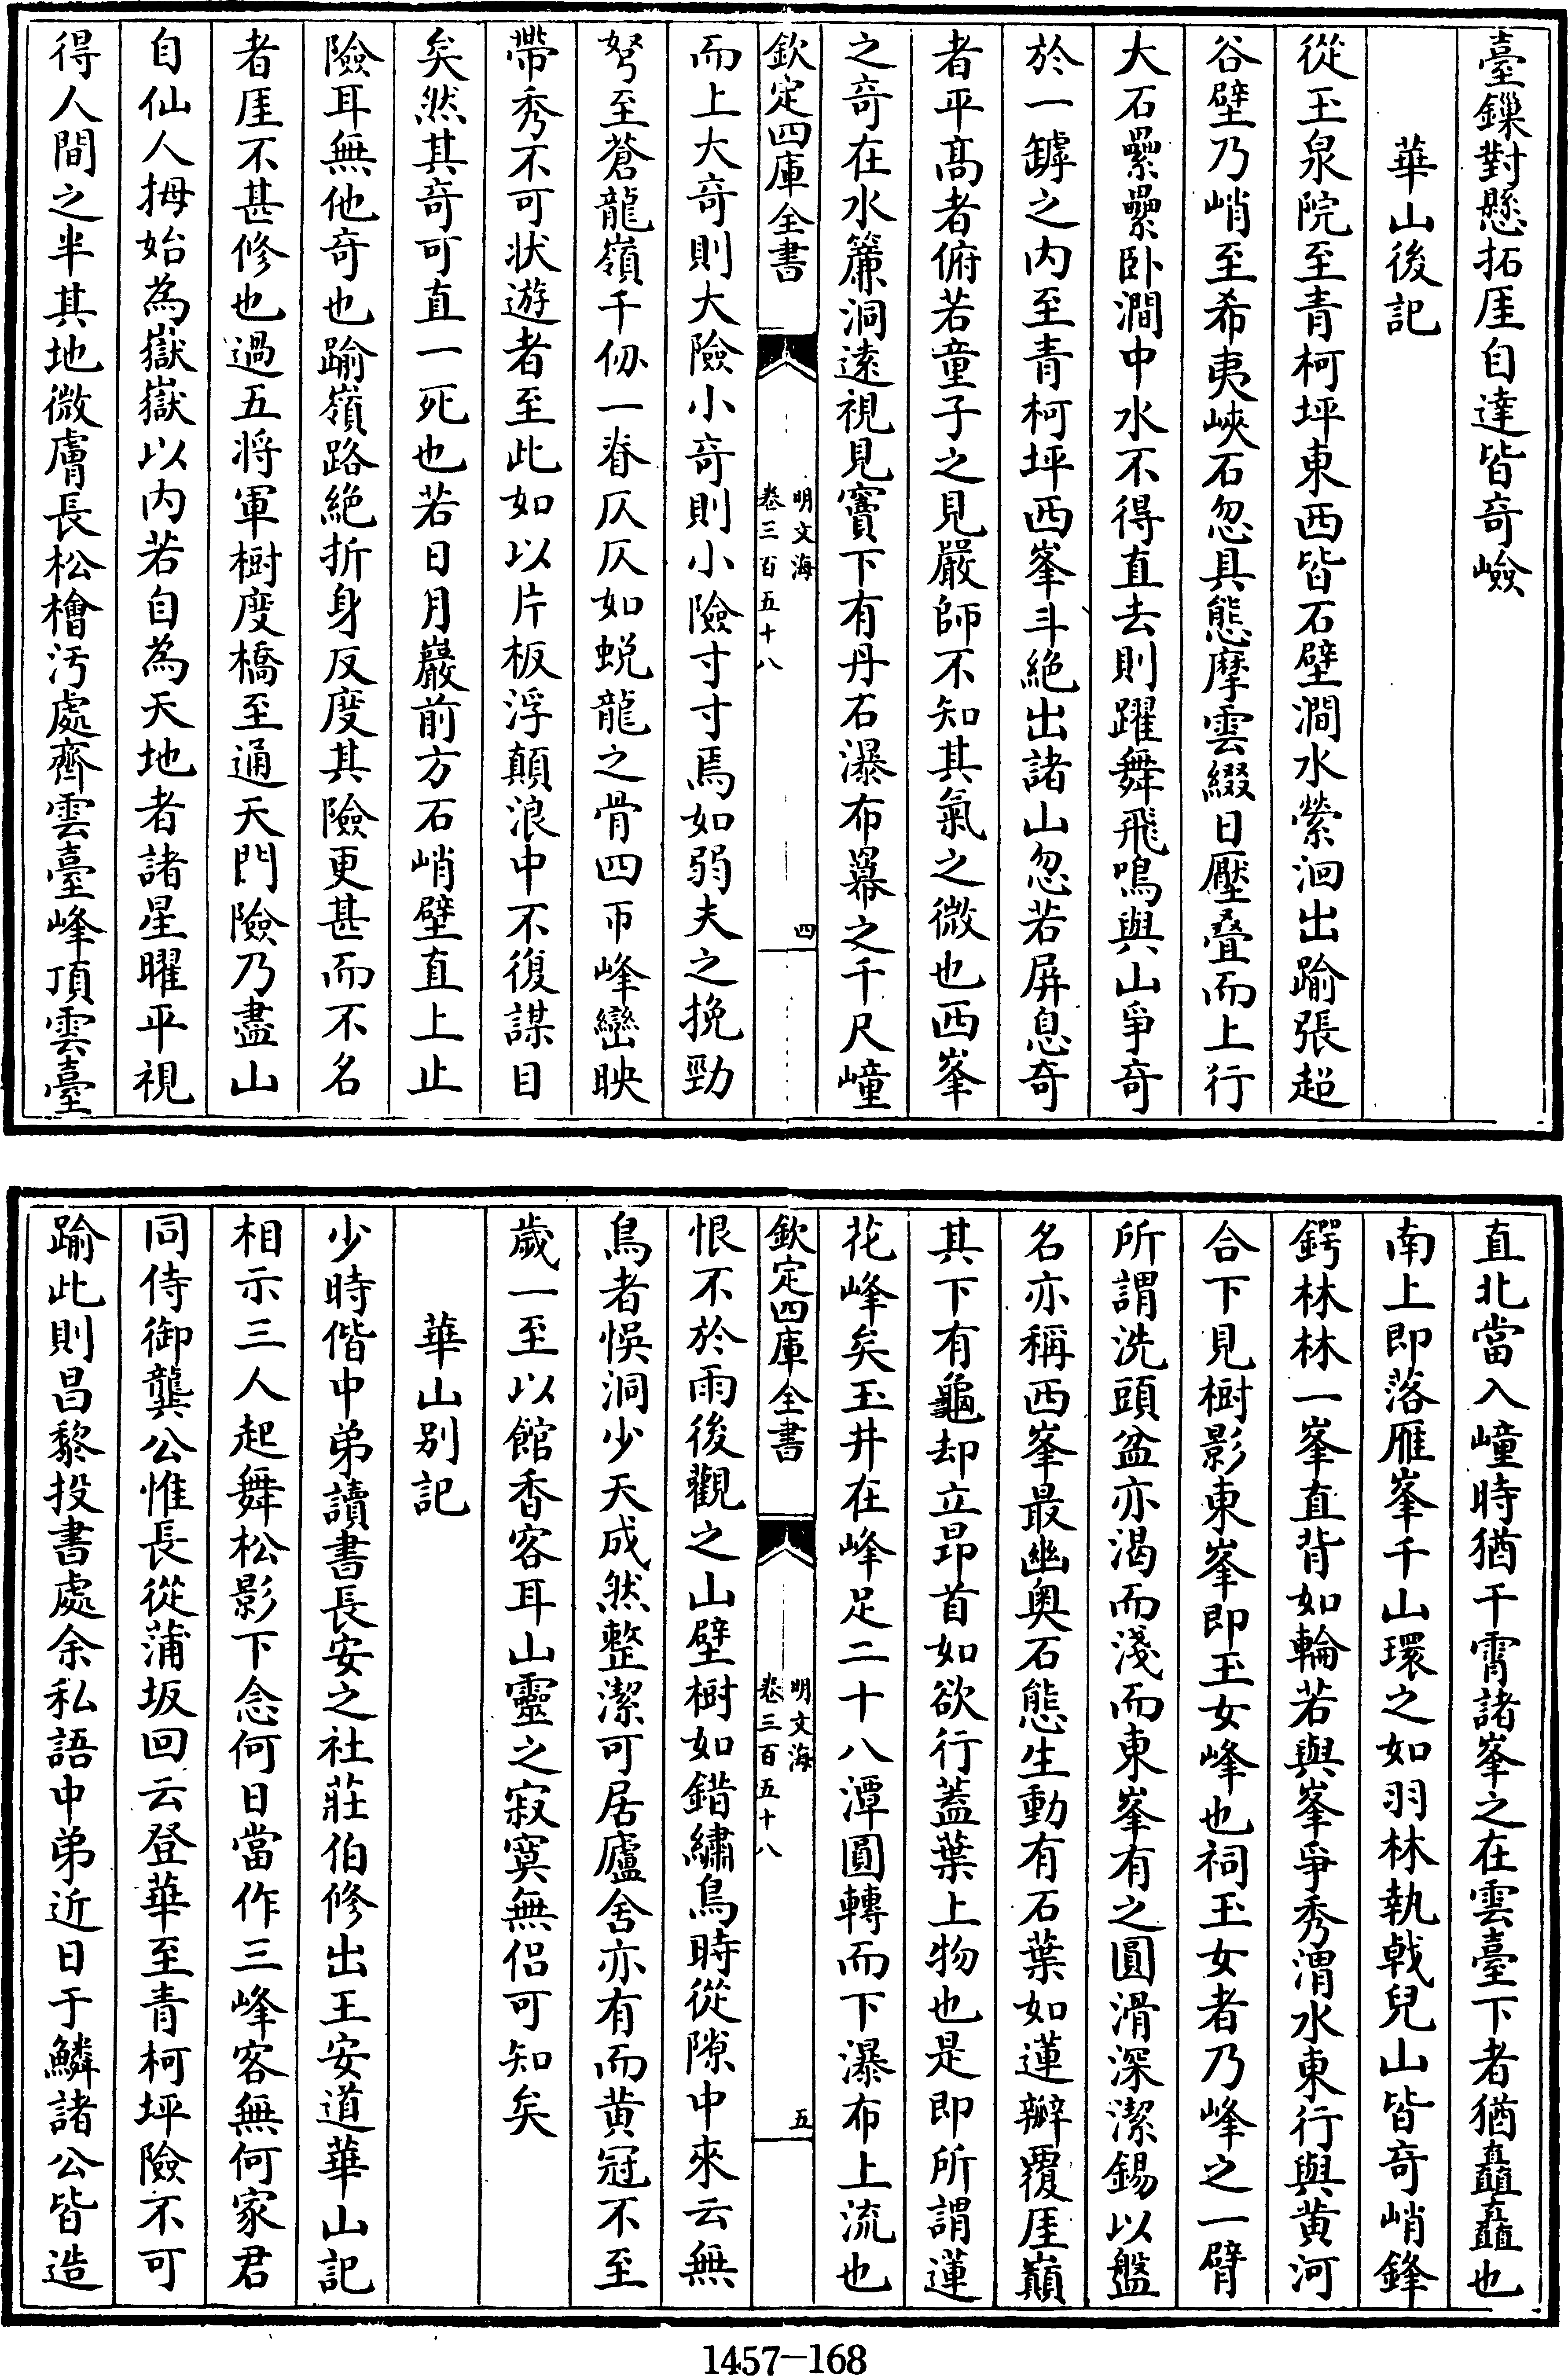 臺鏁對懸拓厓自達皆奇嶮
華山後記
從玉泉院至青柯坪東西皆石壁澗水縈洄出踰張超
谷壁乃峭至希夷峽石忽具態摩雲綴日壓叠而上行
大石纍纍卧澗中水不得直去則躍舞飛鳴與山爭奇
於一罅之内至青柯坪西峯斗絕出諸山忽若屏息奇
者平髙者俯若童子之見嚴師不知其氣之微也西峯
之奇在水簾洞逺視見竇下有丹石瀑布冪之千尺㠉
欽定四庫全書
明文海
卷三百五十八
四
而上大奇則大險小奇則小險寸寸焉如弱夫之挽勁
弩至蒼龍嶺千仭一脊仄仄如蛻龍之骨四帀峰巒映
帶秀不可狀遊者至此如以片板浮顛浪中不復謀目
矣然其奇可直一死也若日月巖前方石峭壁直上止
險耳無他奇也踰嶺路絕折身反度其險更甚而不名
者厓不甚修也過五將軍樹度橋至通天門險乃盡山
自仙人拇始為嶽嶽以内若自為天地者諸星曜平視
得人間之半其地微膚長松檜汚處齊雲臺峰頂雲臺
直北當入㠉時猶干霄諸峯之在雲臺下者猶矗矗也
南上即落雁峯千山環之如羽林執戟兒山皆奇峭鋒
鍔林林一峯直背如輪若與峯爭秀渭水東行與黄河
合下見樹影東峯即玉女峰也祠玉女者乃峰之一臂
所謂洗頭盆亦渴而淺而東峯有之圓滑深潔錫以盤
名亦稱西峯最幽奥石態生動有石葉如蓮瓣覆厓巔
其下有龜却立昂首如欲行蓋葉上物也是即所謂蓮
花峰矣玉井在峰足二十八潭圓轉而下瀑布上流也
欽定四庫全書
明文海
卷三百五十八
五
恨不於雨後觀之山壁樹如錯繡鳥時從隙中來云無
鳥者悞洞少天成然整潔可居廬舍亦有而黄冠不至
歲一至以館香客耳山靈之寂寞無侣可知矣
華山别記
少時偕中弟讀書長安之社莊伯修出王安道華山記
相示三人起舞松影下念何日當作三峰客無何家君
同侍御龔公惟長從蒲坂回云登華至青柯坪險不可
踰此則昌黎投書處余私語中弟近日于鱗諸公皆造
1457-168